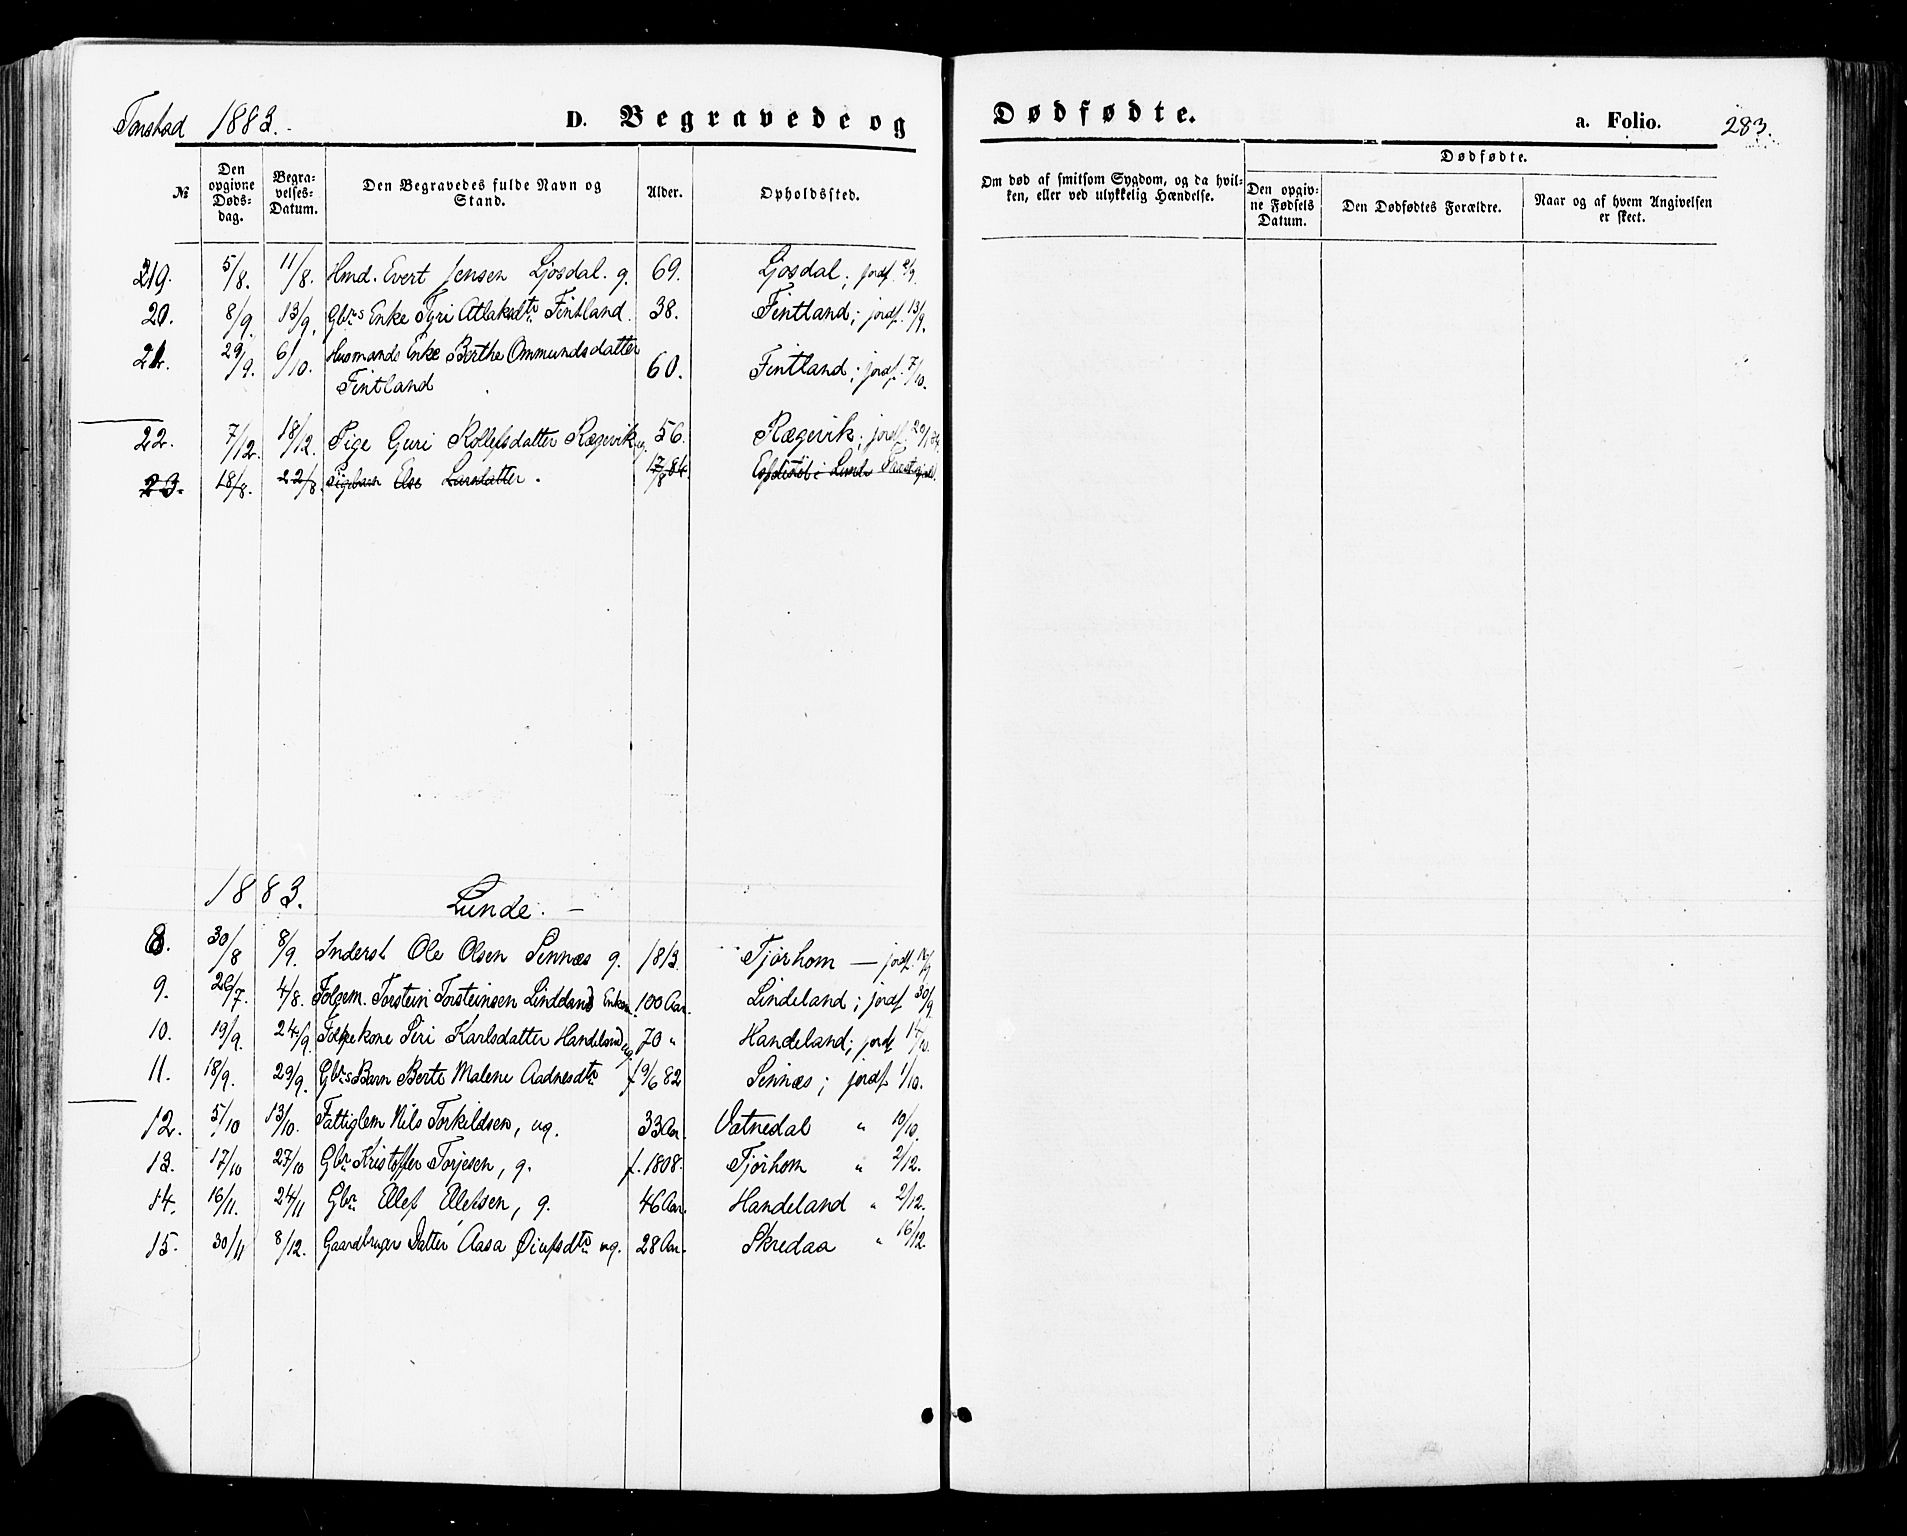 Tonstad 1883. D. Begravede og
Dødfødte. a. Folio. 283.
№ Den opgivne Døds-dag. Begra-velses-Datum. Den Begravedes fulde Navn og Stand. Alder. Opholdssted.
Om død af smitsom Sygdom, og da hvil-ken, eller ved ulykkelig Hændelse. Dødfødte. Den opgiv-ne Fødsels Datum. Den Dødfødtes Forældre. Naar og af hvem Angivelsen er skeet.
19. 5/8. 11/8. Hmd. Evert Jensen Ljosdal. g. 69. Ljosdal; jordf. 2/9.
20. 8/9. 13/9. Gbrs Enke Tyri Atlaksdtr Fintland. 38. Fintland; jordf. 13/9.
21. 29/9. 6/10. Husmands Enke Berthe Ommundsdatter
Fintland 60. Fintland; jordf. 7/10.
22. 7/12. 18/12. Pige Guri Rollefsdatter Rægevik ug. 56. Rægevik; jordf. 20/1 84.
23. 18/8. 22/8. Pigebarn Else Larsdatter. 17/8 84. i Lunde Præstegjeld.
1883. Lunde. —
8. 30/8 8/9. Inderst Ole Olsen Sinnæs g. 1813. Tjørhom — jordf.
9. 26/7. 4/8. Folgem. Torstein Torsteinsen Lindeland Enkem. 100 Aar. Lindeland; jordf 30/9.
10. 19/9. 24/9. Folgekone Siri Karlsdatter Handeland ug. 70 " Handeland; jordf 14/10.
11. 18/9. 29/9. Gbrs Barn Berte Malene Aadnesdtr f 9/6 82 Sinnæs; jordf 1/10.
12. 5/10 13/10. Fattiglem Nils Torkildsen, ug. 33 Aar. Vatnedal " 10/10.
13. 17/10 27/10 Gbr Kristoffer Torjesen, g. f. 1808. Tjørhom " 2/12.
14. 16/11. 24/11 Gbr Ellef Ellefsen, g. 46 Aar. Handeland " 2/12.
15. 30/11 8/12. Gaardbruger Datter Aasa Øiufsdtr ug. 28 Aar. Skredaa " 16/12.